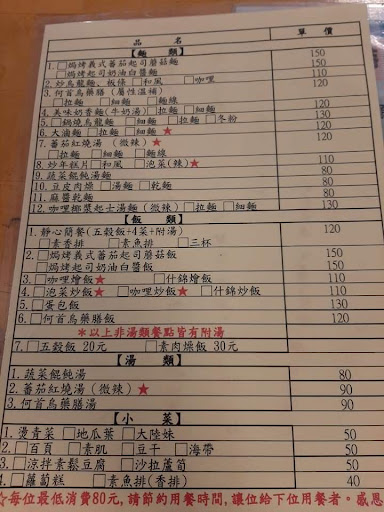 品 名 單價
【麵 類】
1.□焗烤義式蕃茄起司蘑菇麵 150
□焗烤起司奶油白醬麵 150
2.炒烏龍麵、板條□和風 □咖哩 110
3.何首烏藥膳（屬性溫補） 120
□拉麵 □細麵 □麵線
4.美味奶香麵(牛奶湯)□拉麵□細麵 120
5.□鍋燒烏龍麵□細麵□拉麵□冬粉 120
6.大滷麵□拉麵□細麵★ 130
7.蕃茄紅燒湯 (微辣)★ 120
□拉麵 □細麵 □麵線
8.炒年糕片□和風 □泡菜(辣)★ 110
9.蔬菜餛飩湯麵 80
10.□豆皮肉燥□湯麵□乾麵 80
11.麻醬乾麵 80
12.咖哩椰漿起士湯麵(微辣)□拉麵□細麵 130
【飯 類】
1.靜心簡餐(五穀飯+4菜+附湯) 120
□素香排 □素魚排 □三杯
2.□焗烤義式蕃茄起司蘑菇飯 150
□焗烤起司奶油白醬飯 150
3.□咖哩燴飯★ □什錦燴飯 110
4.□泡菜炒飯★□咖哩炒飯★□什錦炒飯 110
5.□蛋包飯 130
6.□何首烏藥膳飯 120
*以上非湯類餐點皆有附湯
7.□五穀飯 20元 □素肉燥飯 30元
【湯 類】
1.蔬菜餛飩湯 80
2.蕃茄紅燒湯(微辣)★ 90
3.何首烏藥膳湯 90
【小 菜】
1.燙青菜□地瓜葉□大陸妹 50
2.□百頁 □素肌 □豆干□海帶 50
3.□涼拌素鬆豆腐□沙拉蘆筍 50
4.□蘿蔔糕 □素魚排(香排) 40
☆每位最低消費80元,請節約用餐時間,讓位給下位用餐者。感恩